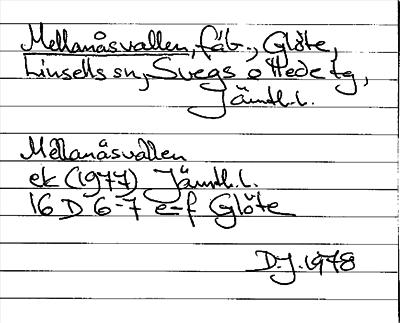 Mellanåsvallen, fäb., Glöte,
Linsells sn, Svegs o Hede tg,
Jämtl.l.
Mellanåsvallen
ek (1977) Jämtl.l.
16 D 6-7 e-f Glöte
D.J. 1978